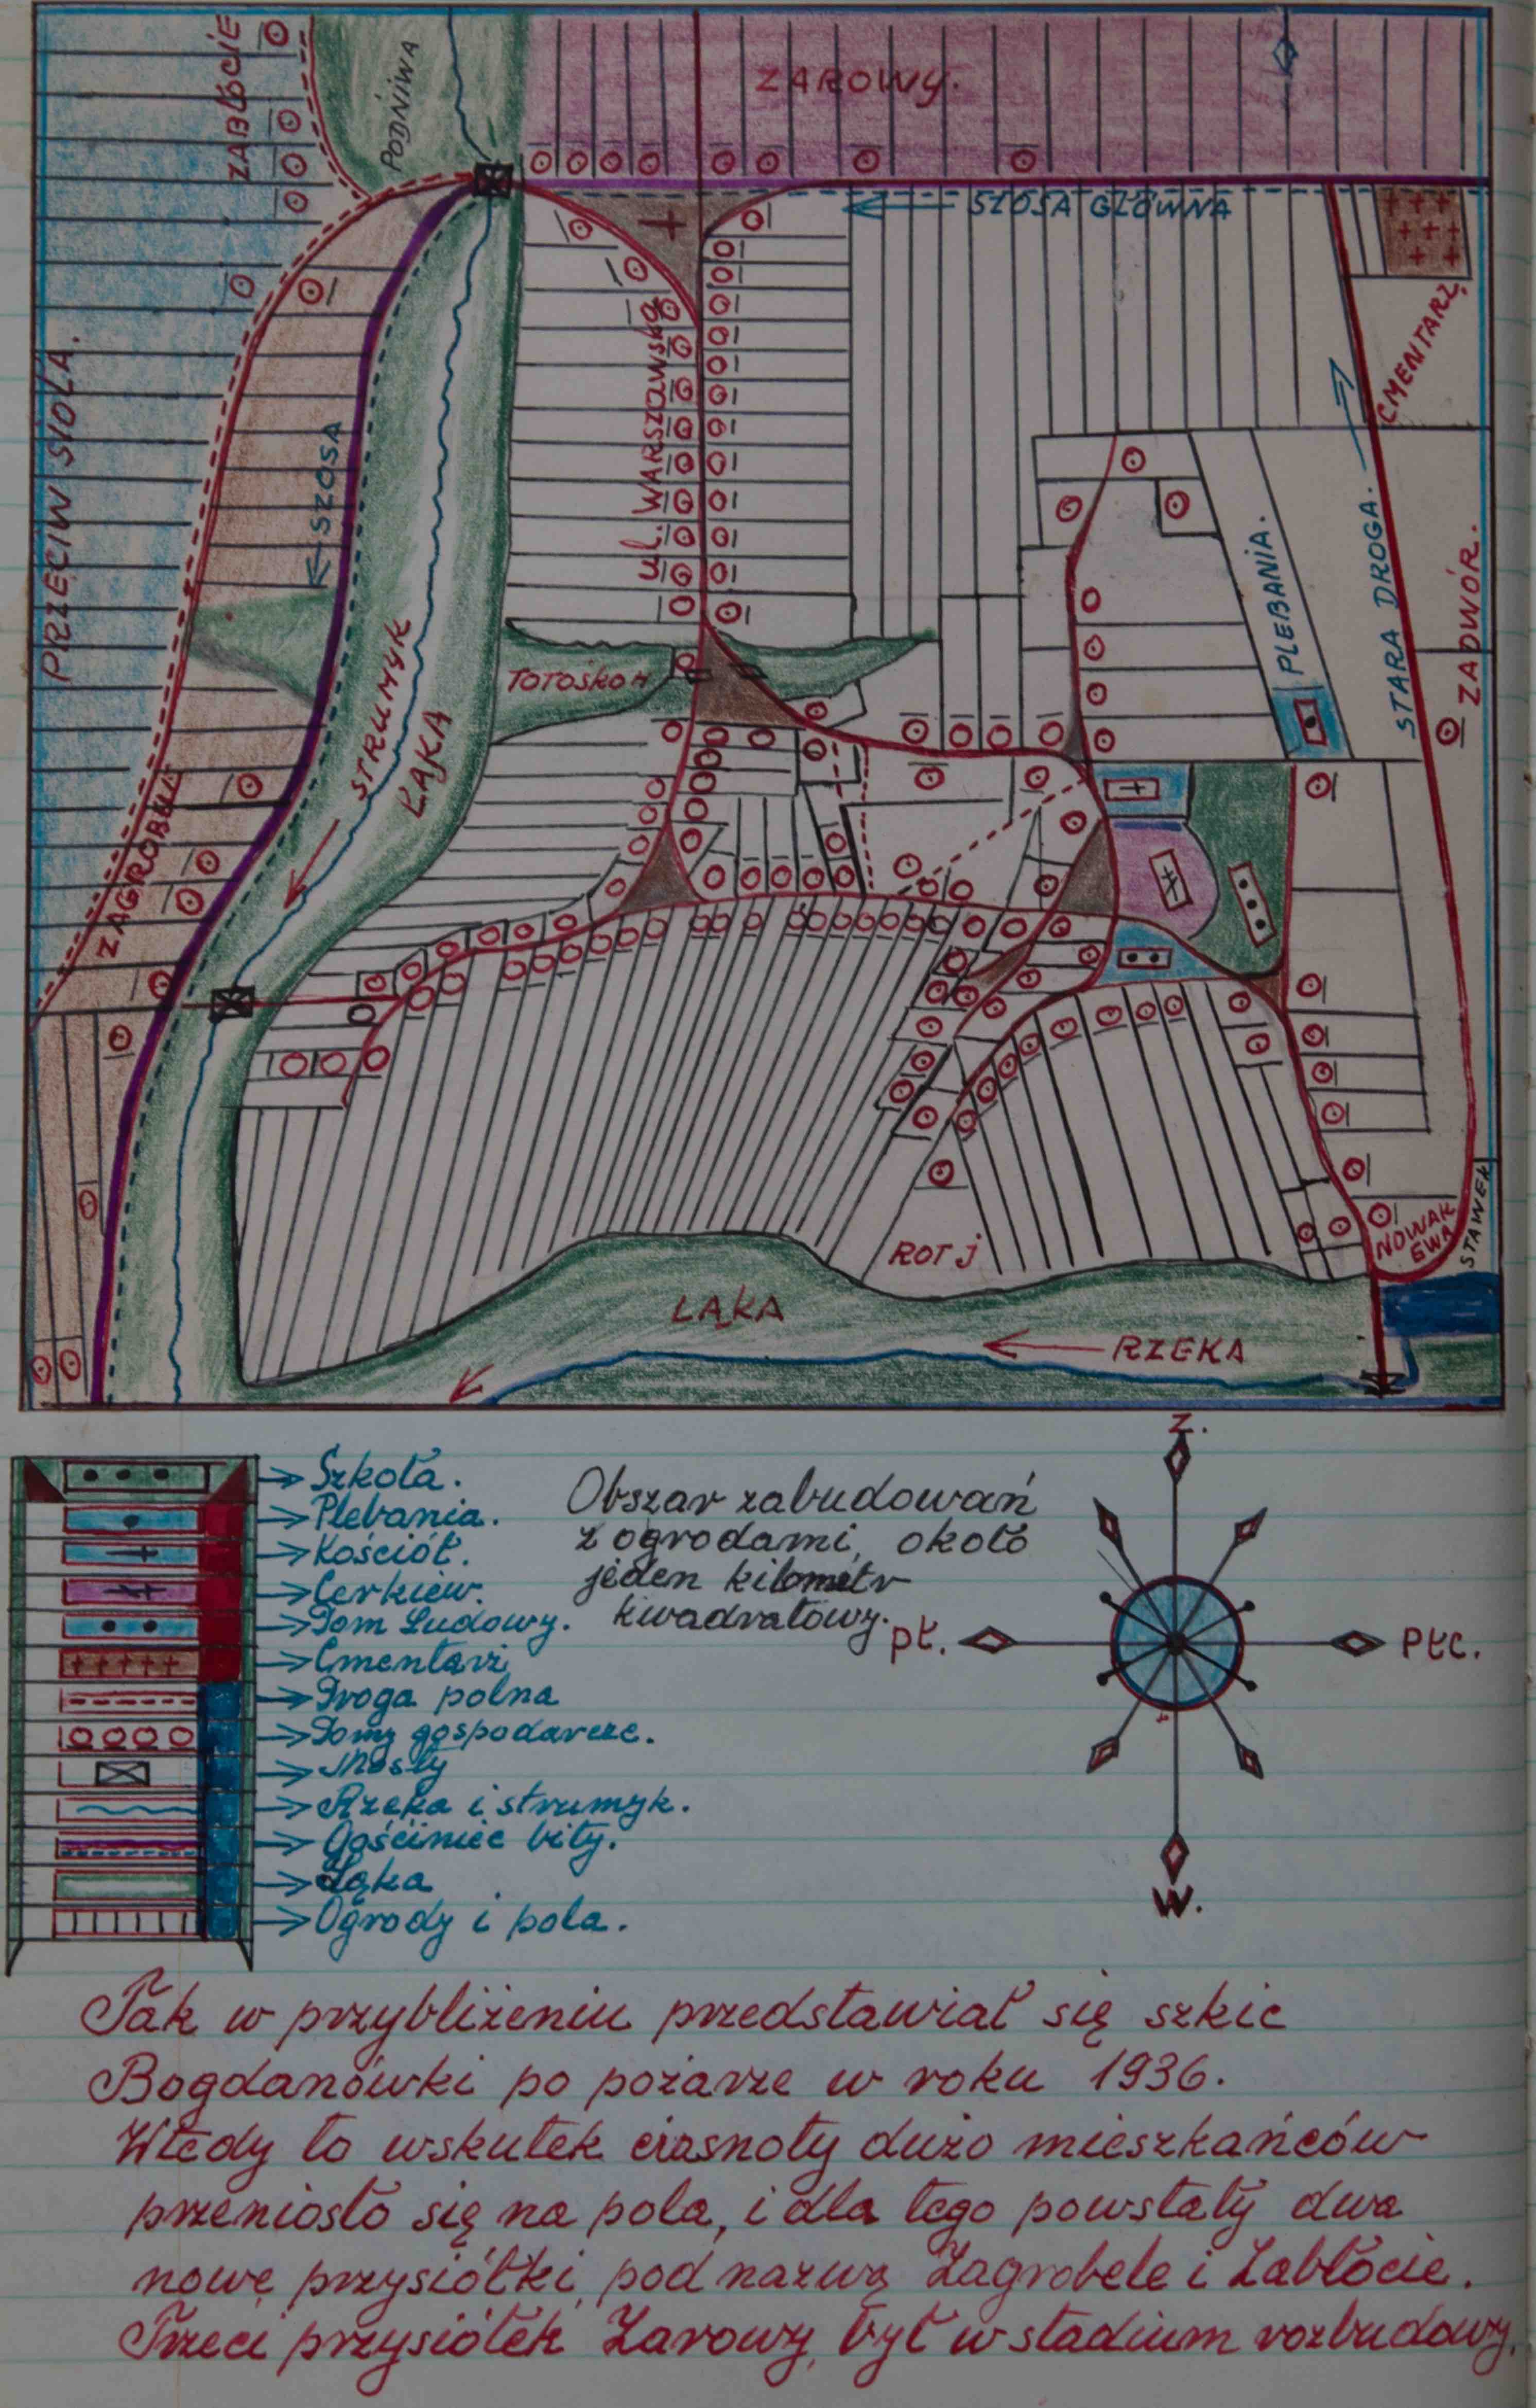 ZABŁOCIE
PODNIWA
ZAROWY.
SZOSA GŁÓWNA
PRZECIW SIOŁA.
SZOSA
ul. WARSZAWSKA
CMENTARZ.
STRUMYK
ŁĄKA
PLEBANIA.
STARA DROGA.
ZADWÓR.
ROT J
NOWAK
EWA
STAWEK
ŁĄKA
RZEKA
Szkoła.
Plebania.
Kościół.
Cerkiew.
Dom Ludowy.
Cmentarz
Droga polna
Domy gospodarcze.
Mosty
Rzeka i strumyk.
Gościniec bity.
Łąka
Ogrody i pola.
Obszar zabudowań
z ogrodami, około
jeden kilometr
kwadratowy.
Z.
Pł.
Płc.
W.
Tak w przybliżeniu przedstawiał się szkic
Bogdanówki po pożarze w roku 1936.
Wtedy to wskutek ciasnoty dużo mieszkańców
przeniosło się na pola, i dla tego powstały dwa
nowe przysiółki, pod nazwą Zagrobele i Zabłocie.
Trzeci przysiółek Zarowy, był w stadium rozbudowy.